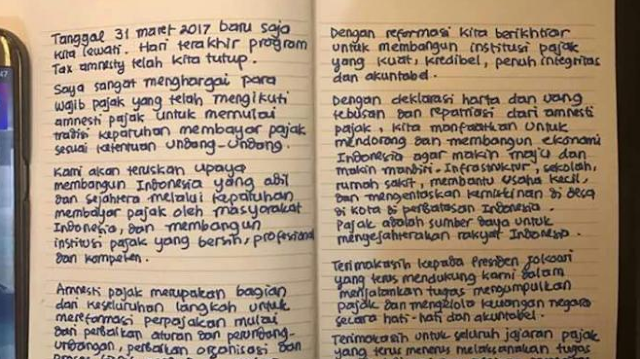 Tanggal 31 maret 2017 baru saja
kita lewati. Hari terakhir program
Tax amnesty telah kita tutup.
Saya sangat menghargai para
wajib pajak yang telah mengikuti
amnesti pajak untuk memulai
tradisi kepatuhan membayar pajak
sesuai ketentuan undang-undang.
Kami akan teruskan upaya
membangun Indonesia yang adil
dan sejahtera melalui kepatuhan
membayar pajak oleh masyarakat
Indonesia, dan membangun
institusi pajak yang bersih, profesional
dan kompeten.
Amnesti pajak merupakan bagian
dari keseluruhan langkah untuk
mereformasi perpajakan mulai
dari perbaikan aturan dan perundang-
undangan, perbaikan organisasi dan
Dengan reformasi kita berikhtiar
untuk membangun institusi pajak
yang kuat, kredibel, penuh integritas
dan akuntabel.
Dengan deklarasi harta dan uang
tebusan dan repatriasi dari amnesti
pajak, kita manfaatkan untuk
mendorong dan membangun ekonomi
Indonesia agar makin maju dan
makin mandiri. Infrastruktur, sekolah,
rumah sakit, membantu usaha kecil,
dan mengentaskan kemiskinan di desa
di kota di perbatasan Indonesia.
Pajak adalah sumber daya untuk
mengejahterakan rakyat Indonesia.
Terimakasih kepada Presiden Jokowi
yang terus mendukung kami dalam
menjalankan tugas mengumpulkan
pajak dan mengelola keuangan negara
secara hati-hati dan akuntabel.
Terimakasih untuk seluruh jajaran pajak
yang terus menerus melaksanakan tugas